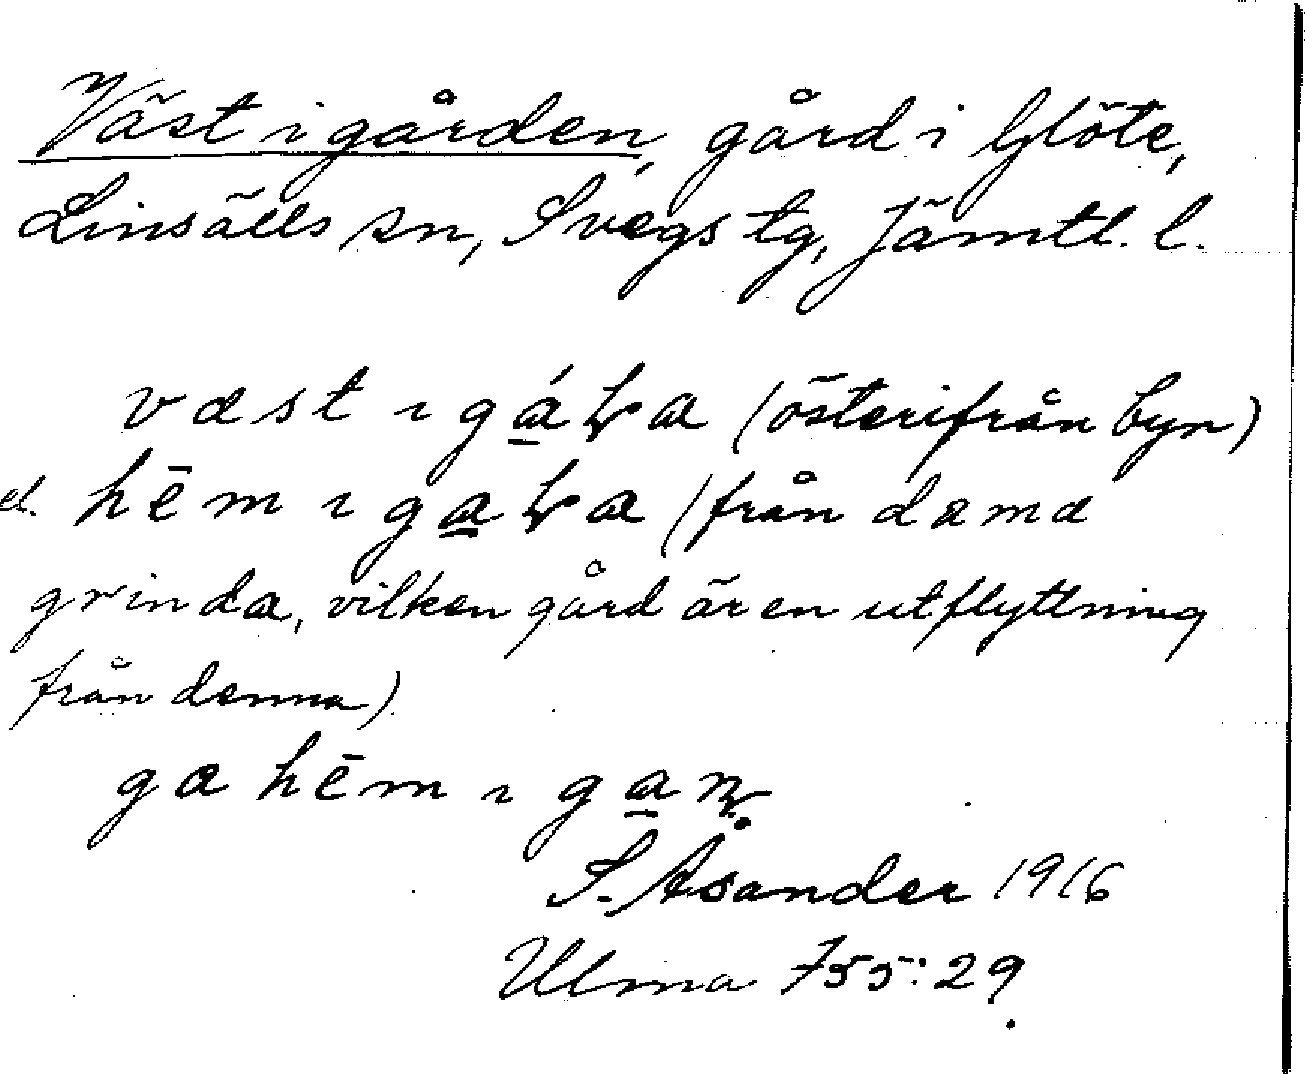 Väst i gården, gård i Glöte,
Linsälls sn, Svegs tg, Jämtl. l.
væst ı gáɽa (österifrån byn)
el. hēm ı gaɽa (från dama
grinda, vilken gård är en utflyttning
från denna)
ga hēm ı gaɳ
S. Åsander 1916
Ulma 755:29.